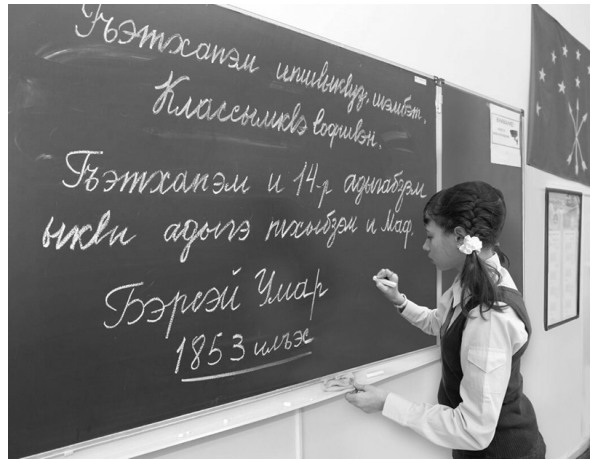 Гъэтхапэм ипшӀыкӀуз. шэмбэт.
КлассымкӀэ Ӏофшӏэн.
Гъэтхапэм и 14-р адыгабзэм
ыкӀи адыгэ тхыбзэм и Маф.
Бэрсэй Умар
1853 илъэс